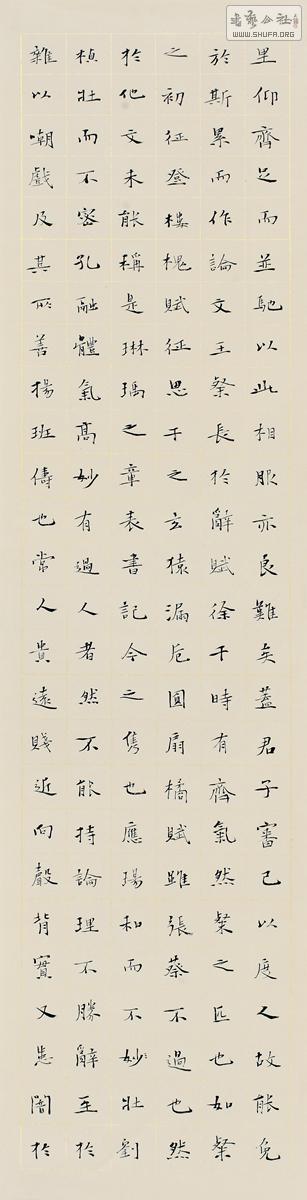 書藝公社
WWW.SHUFA.ORG
里仰齊足而並馳以此相服亦良難矣蓋君子審己以度人故能免
於斯累而作論文王粲長於辭賦徐干時有齊氣然粲之匹也如粲
之初征登樓槐賦征思干之玄猿漏卮圓扇橘賦雖張蔡不過也然
於他文未能稱是琳瑀之章表書記今之雋也應瑒和而不妙壯劉
楨壯而不密孔融體氣高妙有過人者然不能持論理不勝辭至於
雜以嘲戲及其所善揚班儔也常人貴遠賤近向聲背實又患闇於